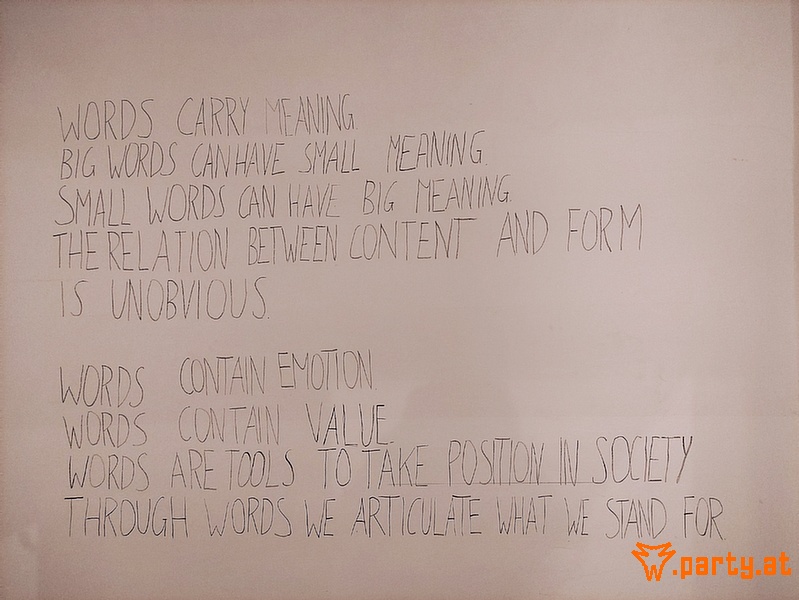 WORDS CARRY MEANING.
BIG WORDS CAN HAVE SMALL MEANING.
SMALL WORDS CAN HAVE BIG MEANING.
THE RELATION BETWEEN CONTENT AND FORM
IS UNOBVIOUS.
WORDS CONTAIN EMOTION.
WORDS CONTAIN VALUE.
WORDS ARE TOOLS TO TAKE POSITION IN SOCIETY
THROUGH WORDS WE ARTICULATE WHAT WE STAND FOR.
.party.at